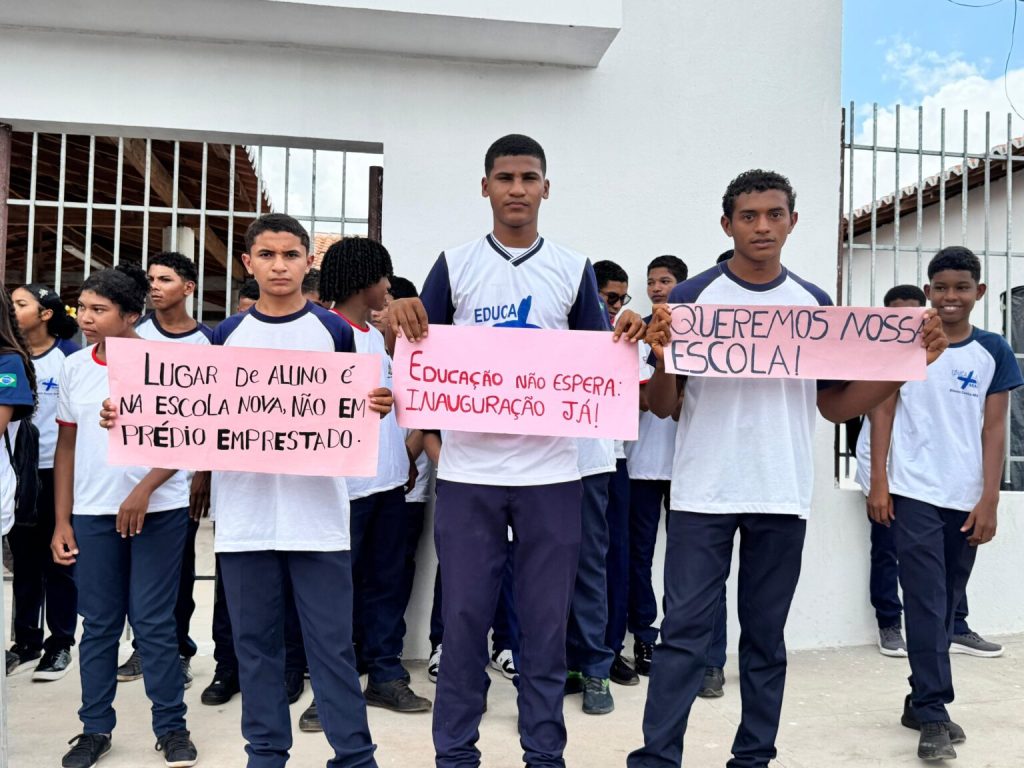 LUGAR DE ALUNO É
NA ESCOLA NOVA, NÃO EM
PRÉDIO EMPRESTADO.
EDUCAÇÃO NÃO ESPERA:
INAUGURAÇÃO JÁ!
QUEREMOS NOSSA
ESCOLA!
EDUCA